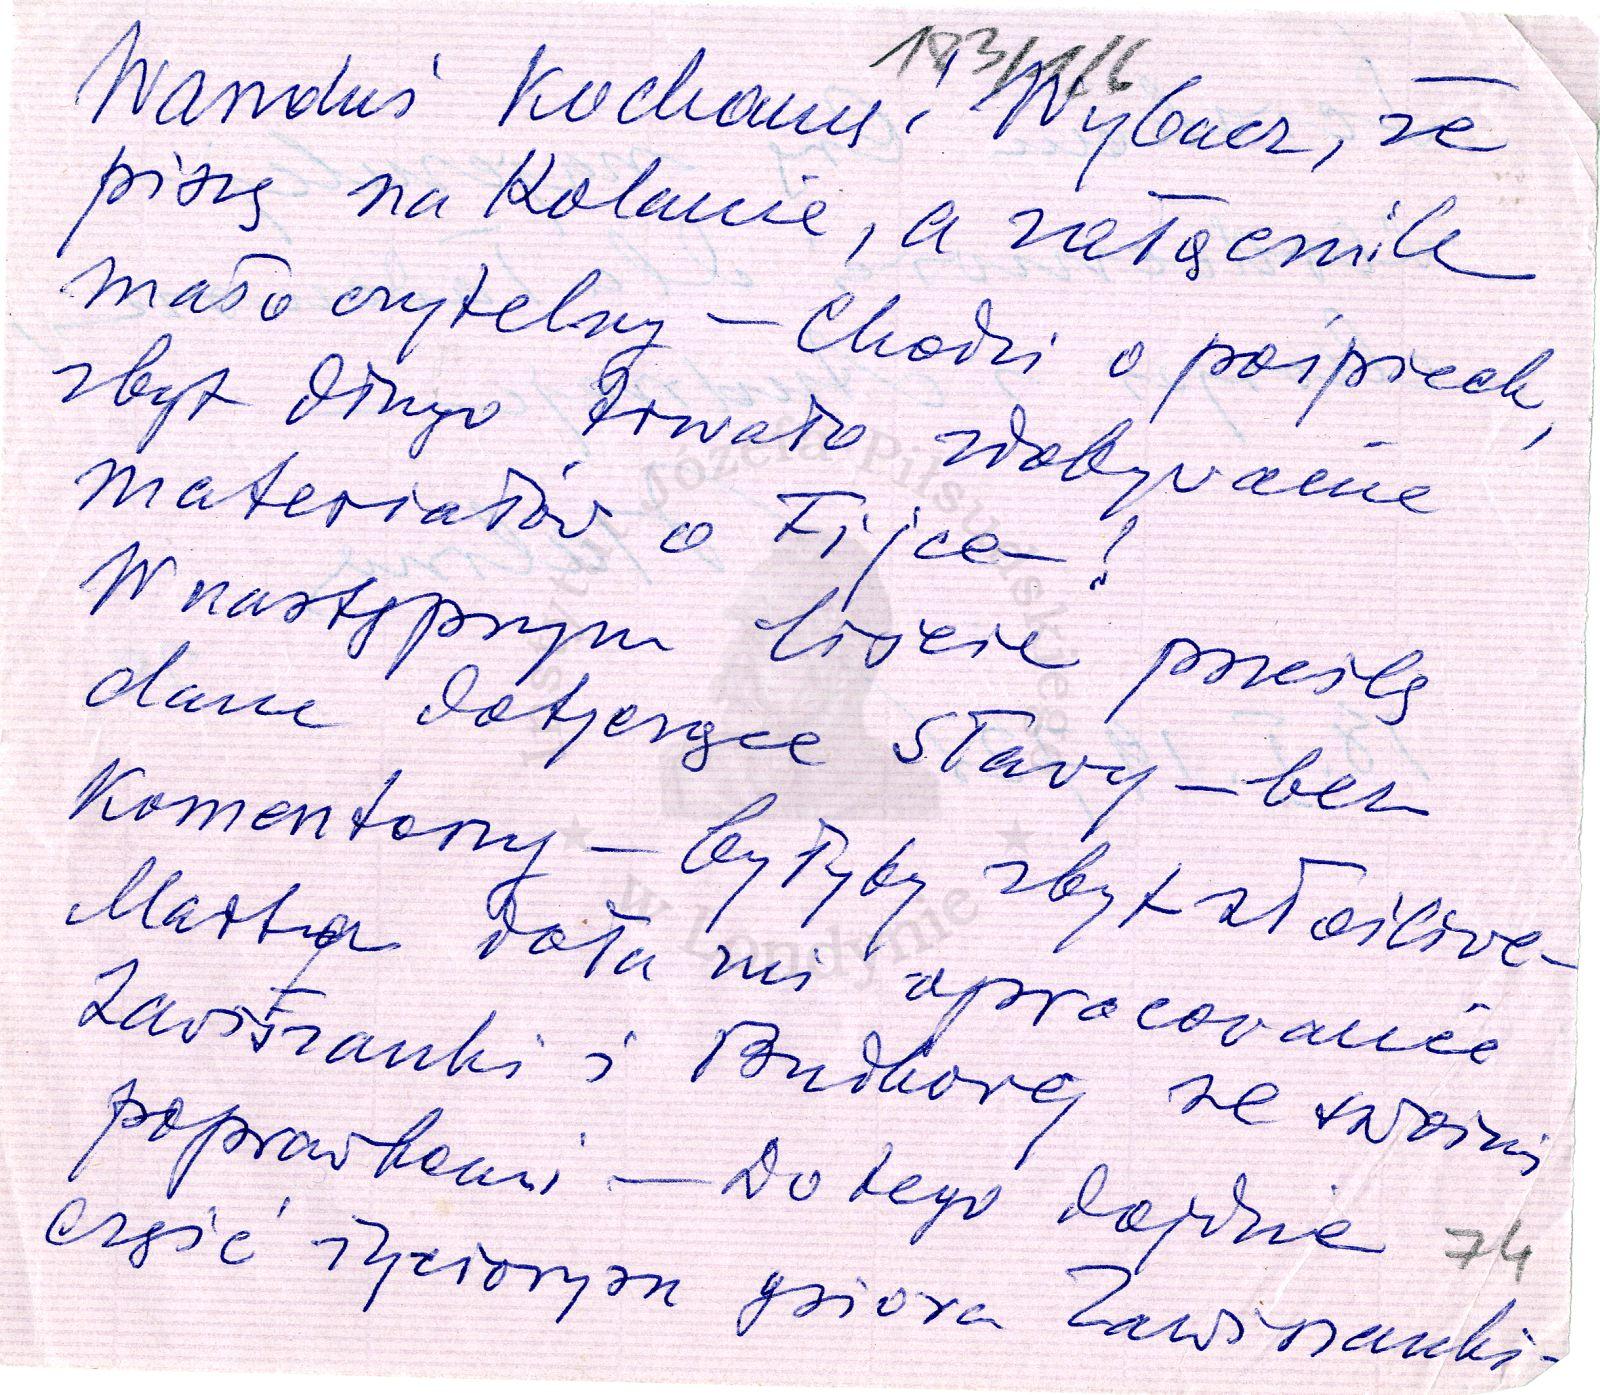 183/1/6
Wanduś Kochany! Wybacz, że
piszę na Kolanie, a załącznik
mało czytelny – Chodzi o pośpiech,
zbyt długo trwało zdobywanie
materiałów o Fijce – !
W następnym liście prześlę
dane dotyczące Sławy – bez
Komentarzy – byłyby zbyt złośliwe –
Marta dała mi opracowanie
Zawiszanki i Budkową ze swoimi
poprawkami – Do tego dojdzie
część życiorysu Zawiszanki –
74
Instytut Józefa Piłsudskiego
w Londynie